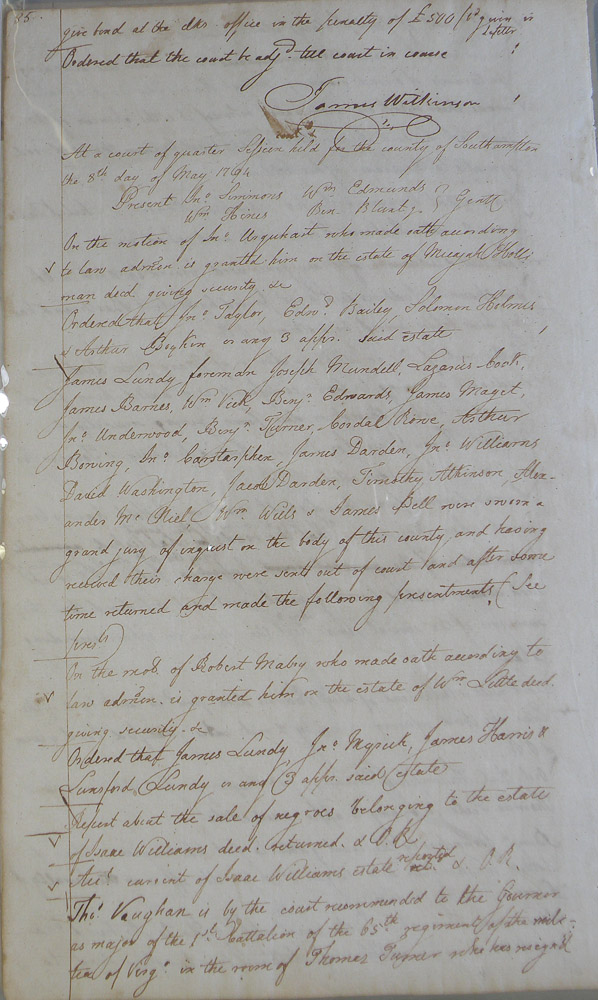 35.
give bond at the clks. office in the penalty of £500 given is
Ordered that the court be adjd. till court in course
James Wilkinson
At a court of quarter Session held for the county of Southampton
the 8th day of May 1794
Present Jno. Simmons Wm Edmunds } Gentl
Wm Hines Ben. Blunt,
On the motion of Jno. Urquhart who made oath according
to law admon. is granted him on the estate of Micajah Holli
man decd. giving security &c
Ordered that Jno. Taylor, Edwd. Bailey, Solomon Holmes
& Arthur Boykin or any 3 appr. said estate
James Lundy foreman Joseph Mundell, Lazarus Cook,
James Barnes, Wm Vick, Benja. Edwards, James Maget,
Jno. Underwood, Benja. Turner, Cordal Rowe, Arthur
Bowing, Jno. Carstarphen, James Darden, Jno. Williams
David Washington, Jacob Darden, Timothy Atkinson, Alex-
ander Mc. Niel, Wm. Wills & James Bell were sworn a
grand jury of inquest on the body of this county and having
received their charge were sent out of court and after some
time returned and made the following presentments (See
prests)
On the mo. of Robert Mabry who made oath according to
law admon. is granted him on the estate of Wm Little decd.
giving security &c
Ordered that James Lundy Jno. Myrick, James Harris &
Lunsford Lundy or any 3 appr. said estate
Report about the sale of negroes belonging to the estate
of Isaac Williams decd. returned. & O.R.
Acct. current of Isaac Williams estate reported & O.R.
Thos. Vaughan is by the court recommended to the Governor
as major of the 1st. Battalion of the 65th regiment of the mili-
tia of Virga. in the room of Thomas Turner who has resignd